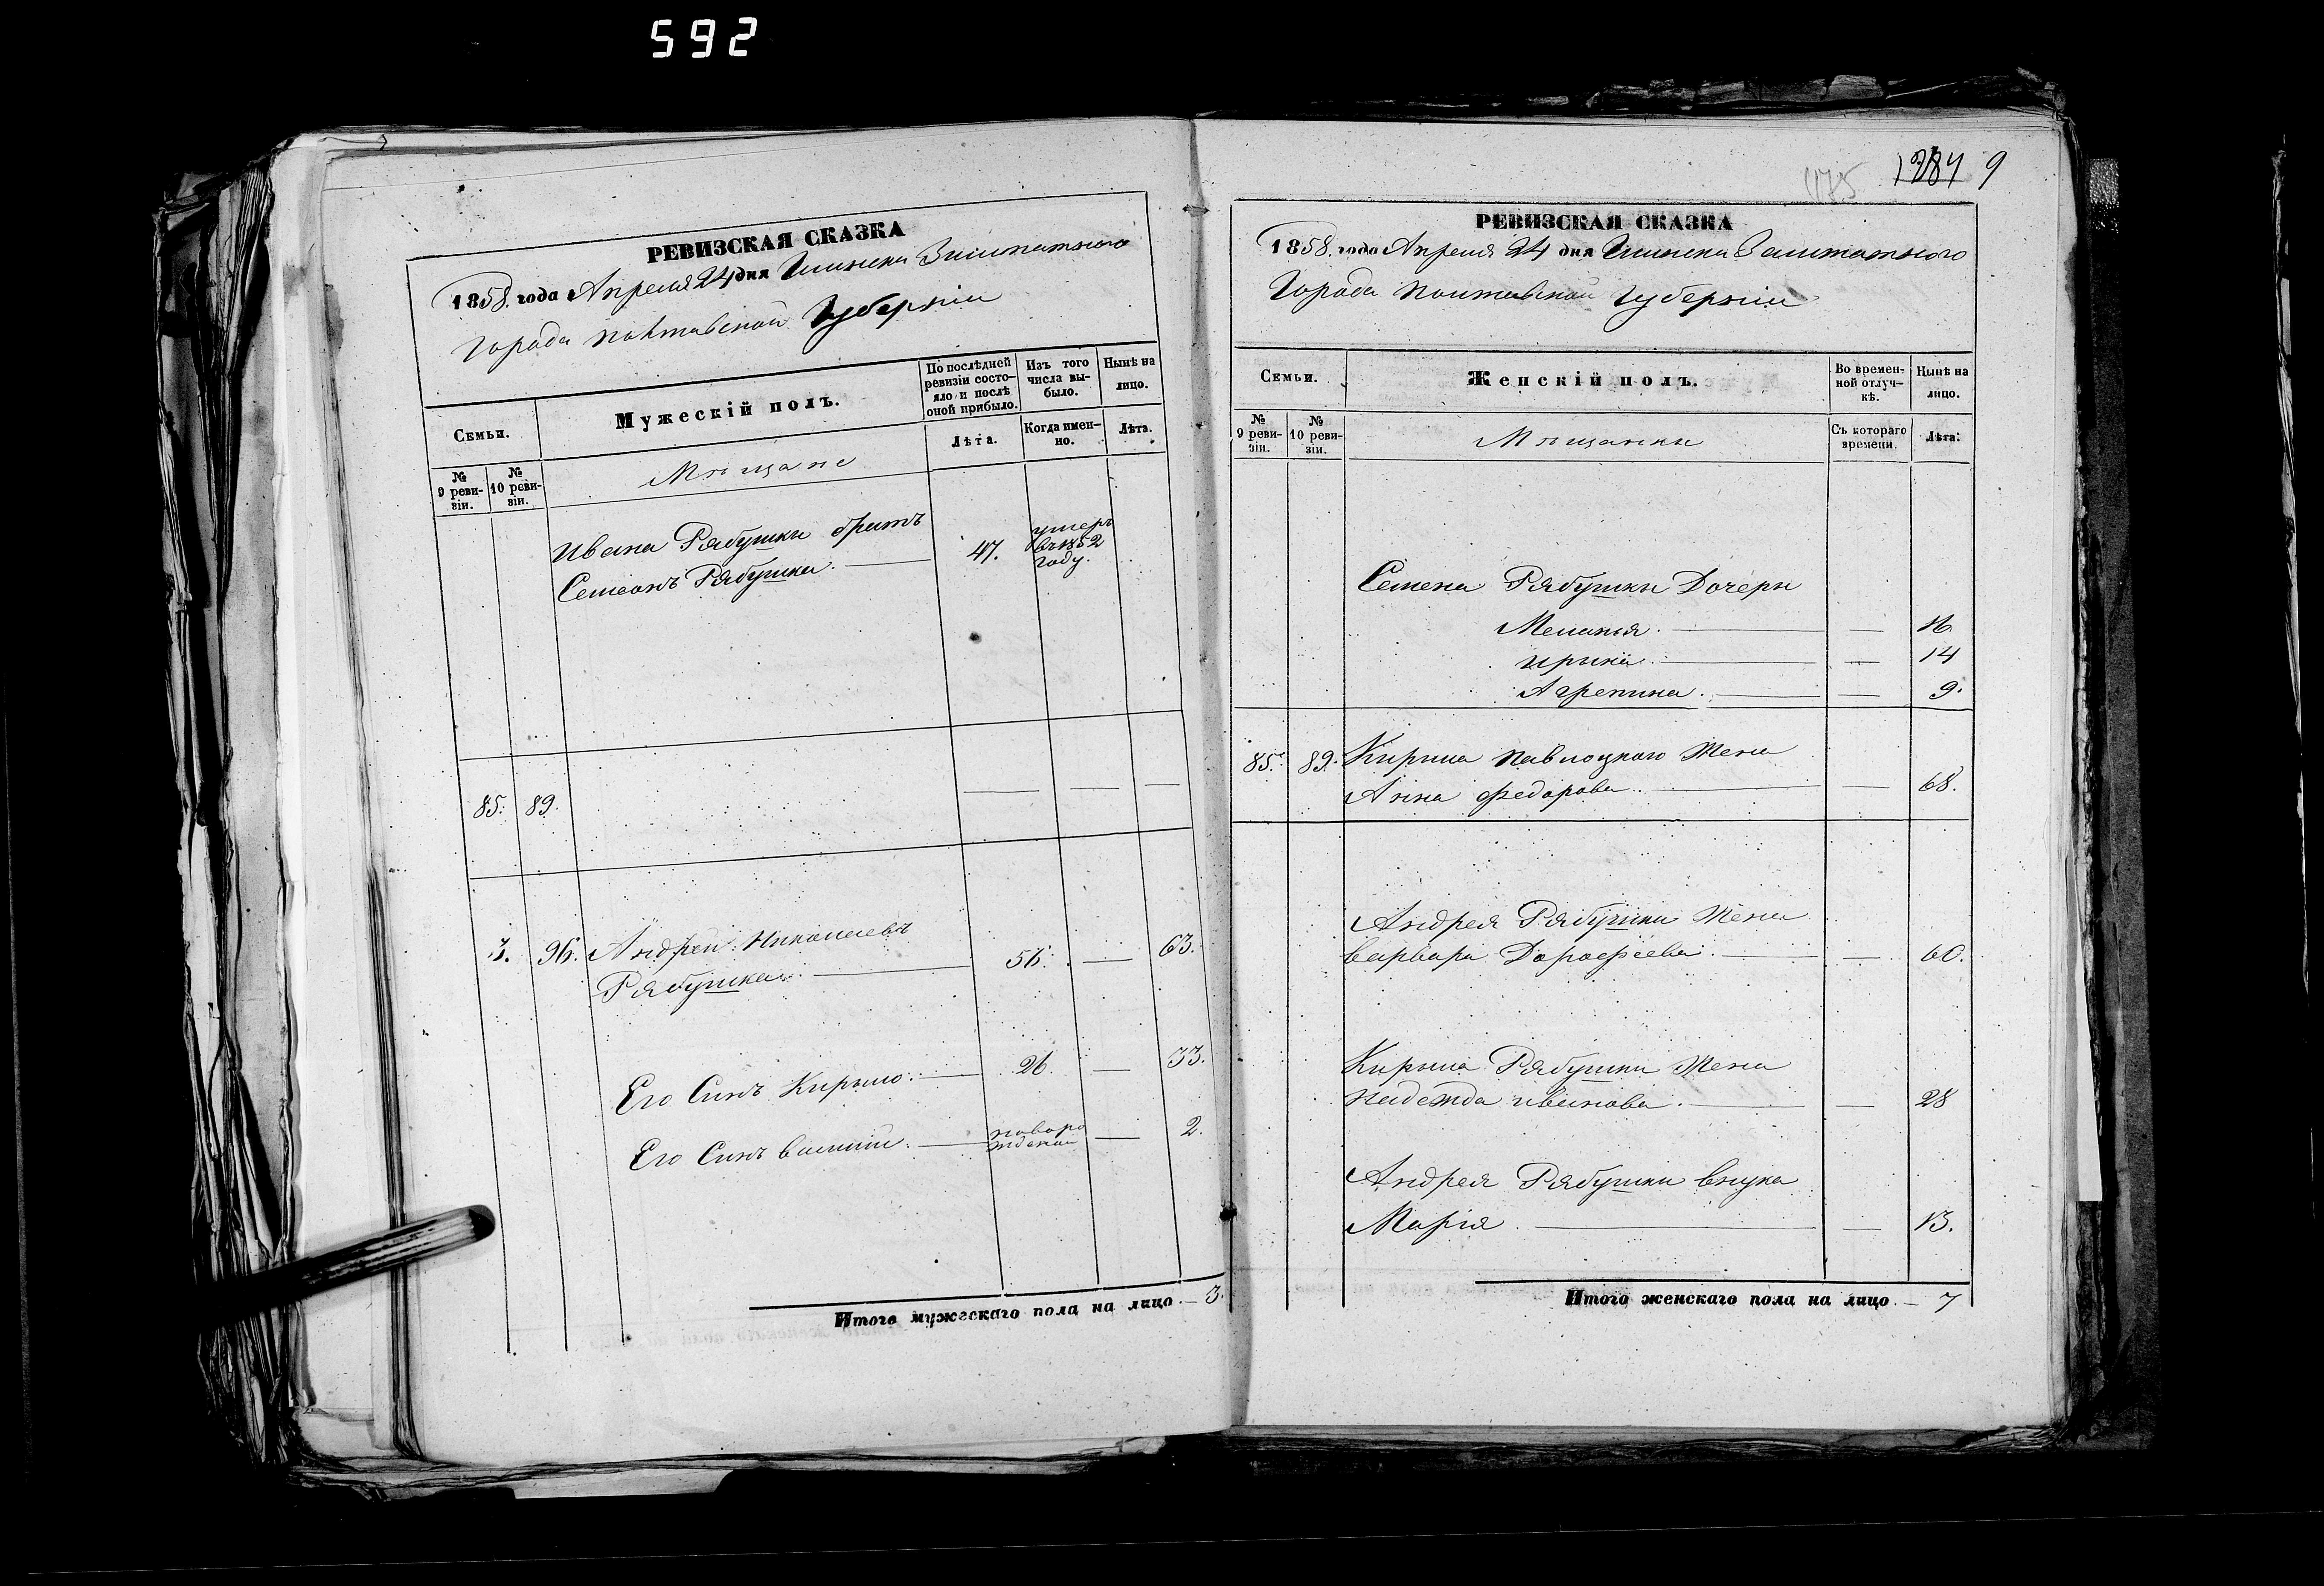 592
РЕВИЗСКАЯ СКАЗКА
1858 года Апреля 24 дня Глинска Заштатного
Города Полтавской Губерніи
Семьи.
Мужескій полъ.
По послѣдней ревизіи состояло и послѣ оной прибыло.
Изъ того числа выбыло.
Нынѣ на лицо.
№ 9 ревизіи.
№ 10 ревизіи.
Мѣщане
Лѣта.
Когда именно.
Лѣта.
Ивана Рябушки братъ
Семеонъ Рябушка. 47. умеръ въ 1852 году.
85. 89.
3. 96. Андрей Николаевъ
Рябушка 56. 63.
Его Синъ Кирыло. 26. 33.
Его Синъ Василий. новорожденой 2.
Итого мужескаго пола на лицо. 3.
1284 9
1175
РЕВИЗСКАЯ СКАЗКА
1858 года Апреля 24 дня Глинска Заштатного
Города Полтавской Губерніи
Семьи.
Женскій полъ.
Во временной отлучкѣ.
Нынѣ на лицо.
№ 9 ревизіи.
№ 10 ревизіи.
Мѣщанки
Съ котораго времени.
Лѣта.
Семена Рябушки Дочери
Меланья. 16
Ирина. 14
Агрепина. 9.
85. 89. Кирила Павлоцкого Жена
Анна Федорова. 68.
Андрея Рябушки Жена
Варвара Дорофеева. 60.
Кирыла Рябушки Жена
Надежда Иванова. 28
Андрея Рябушки внука
Марія. 13.
Итого женскаго пола на лицо. 7